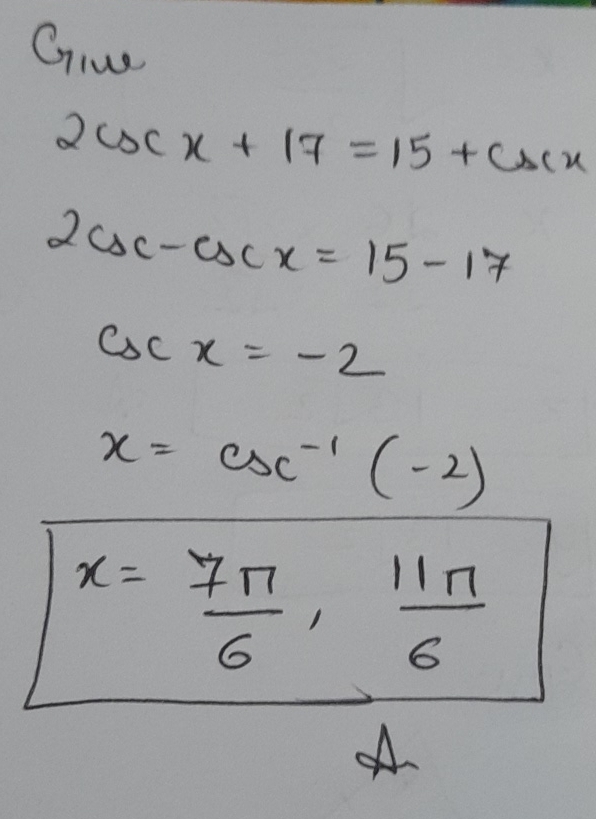 Give
2cscx + 17 = 15 + cscx
2csc - cscx = 15 - 17
csc x = -2
x = csc⁻¹ (-2)
x = 7π/6 , 11π/6